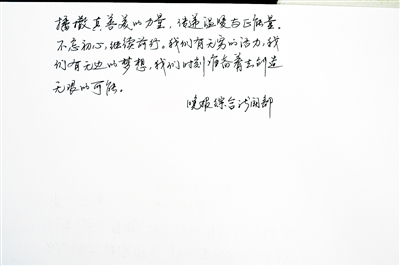 播撒真善美的力量，传递温暖与正能量。
不忘初心，继续前行。我们有无穷的活力，我
们有无边的梦想，我们时刻准备着去创造
无限的可能。
晚报综合新闻部